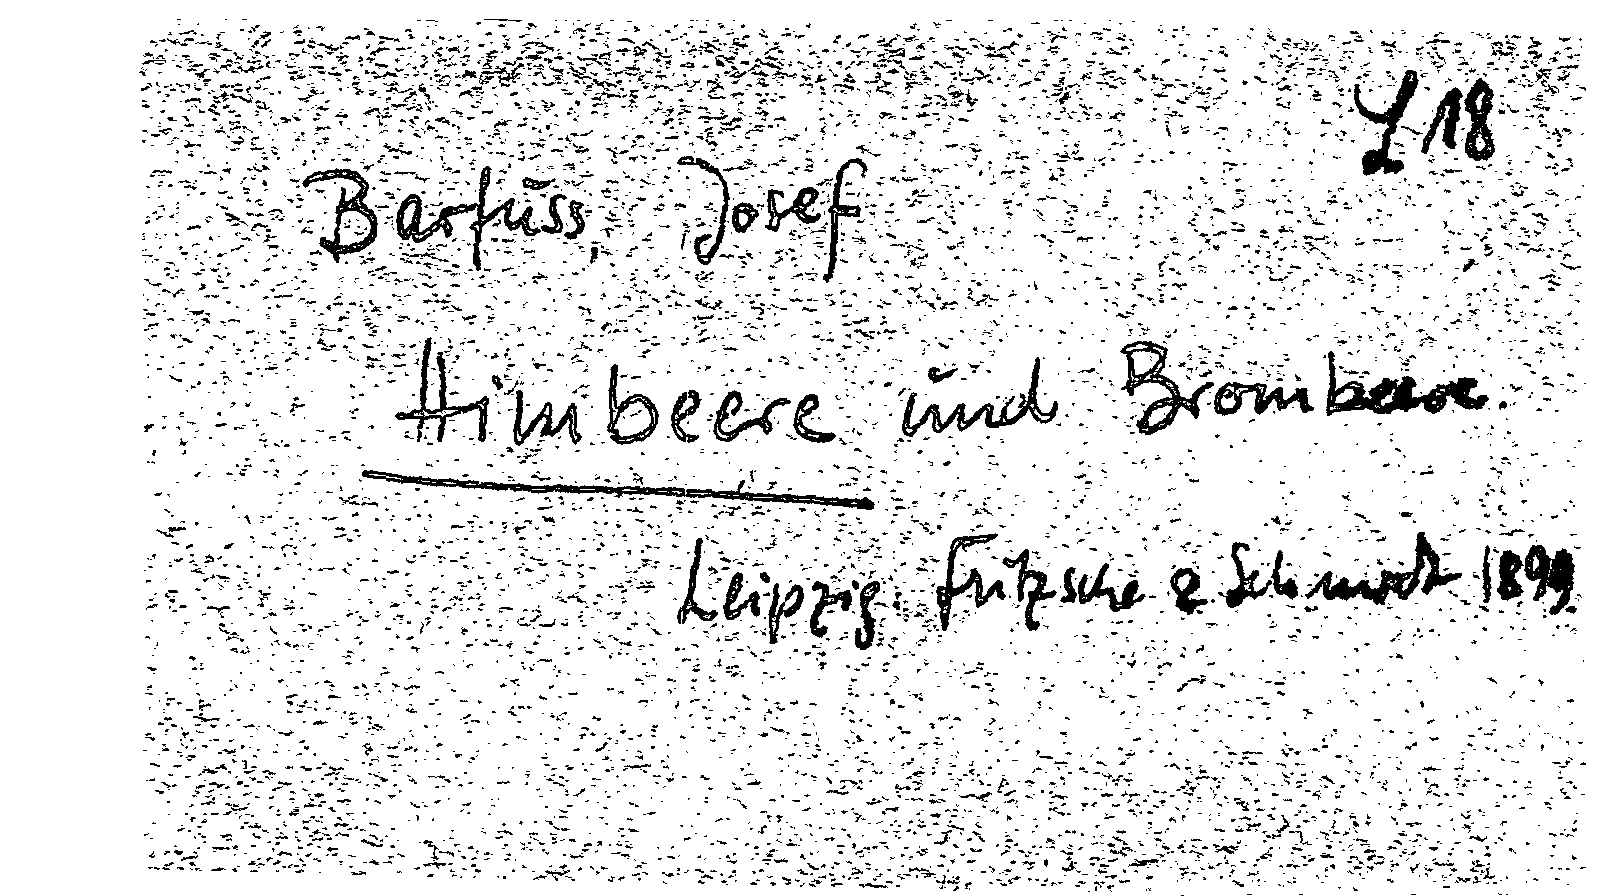 L 18
Barfuss, Josef
Himbeere und Brombeere.
Leipzig, Fritzsche & Schmidt 1899